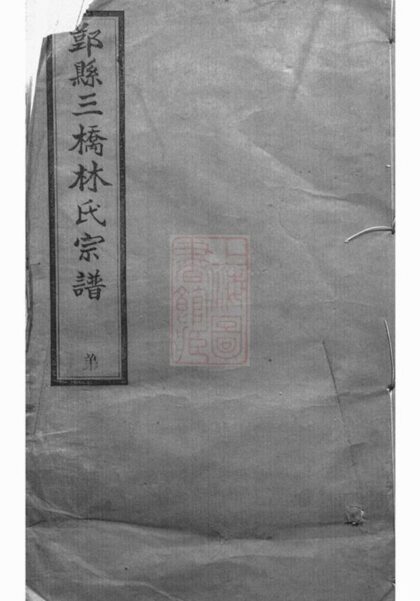 鄞縣三橋林氏宗譜
弟
上海圖書館藏